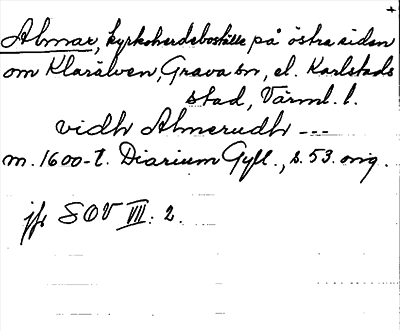 Almar, kyrkoherdeboställe på östra sidan
om Klarälven, Grava sn, el. Karlstads
stad, Värml. l.
vidh Almerudh ---
m. 1600-t. Diarium Gyll., s. 53. orig.
jfr SOV VII: 2.